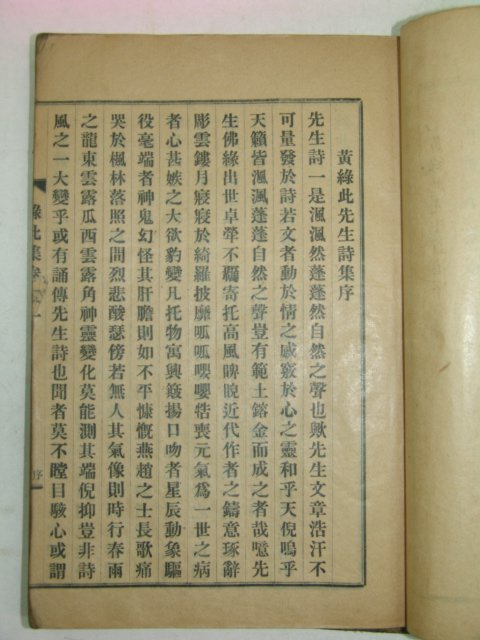 黃綠此先生詩集序
先生詩一是渢渢然蓬蓬然自然之聲也歟先生文章浩汗不
可量發於詩若文者動於情之感竅於心之靈和乎天倪鳴乎
天籟皆渢渢蓬蓬自然之聲豈有範土鎔金而成之者哉噫先
生佛緣出世卓犖不羈寄托高風睥睨近代作者之鑄意琢辭
彫雲鏤月寢寢於綺羅披靡呱呱嚶嚶牿喪元氣爲一世之病
者心甚嫉之大欲豹變凡托物寓興簸揚口吻者星辰動象驅
役毫端者神鬼幻怪其肝膽則如不平慷慨燕趙之士長歌痛
哭於楓林落照之間烈悲酸瑟傍若無人其氣像則時行春雨
之龍東雲露瓜西雲露角神靈變化莫能測其端倪抑豈非詩
風之一大變乎或有誦傳先生詩也聞者莫不瞠目駭心或謂
綠此集卷之一
序